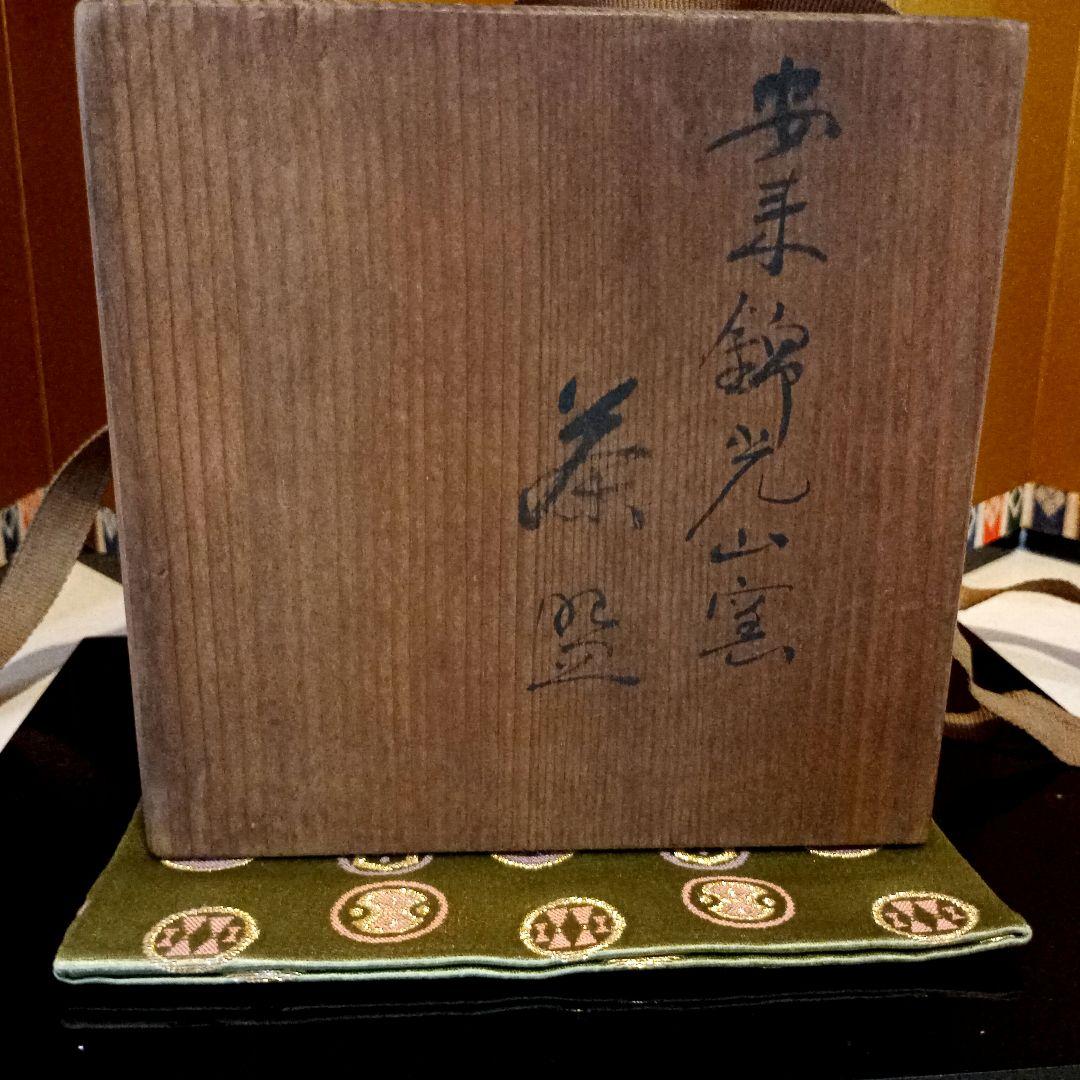 安来錦光山窯
茶盌